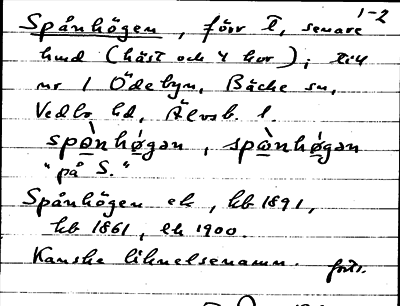 1-2
Spånhögen, förr t, senare
hmd (häst och 4 kor); till
nr 1 Ödebyn, Bäcke sn,
Vedbo hd, Älvsb. l.
spån̄høgan, spån̄høgan
"på S."
Spånhögen ek, kb 1891,
hb 1861, ek 1900.
Kanske liknelsenamn. forts.